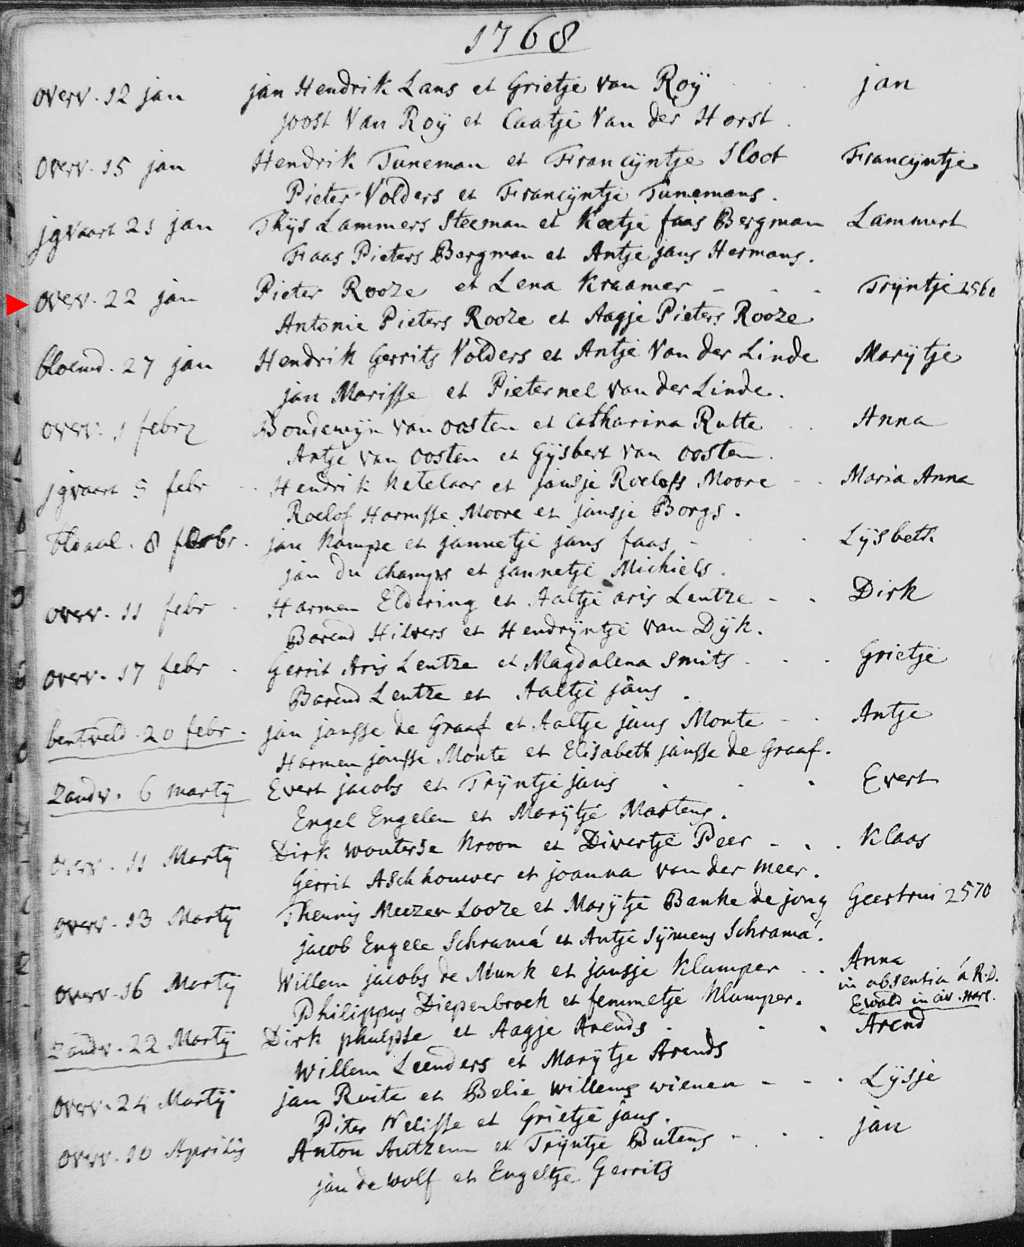 1768
overv. 12 jan jan Hendrik Lans et Grietje van Roÿ jan
joost Van Roÿ et Caatje Van der Horst.
overv. 15 jan Hendrik Tuneman et Francÿntje Sloot Francÿntje
Pieter Volders et Francÿntje Tunemans.
jgvaart 21 jan Thÿs Lammers Steeman et Keetje faas Bergman Lammert
Faas Pieters Bergman et Antje jans Hermans.
overv. 22 jan Pieter Rooze et Lena Kraamer - - - Trÿntje 2560
Antonie Pieters Rooze et Aagje Pieters Rooze
bloemd. 27 jan Hendrik Gerrits Volders et Antje Van der Linde Marÿtje
jan Marisse et Pieternel van der Linde.
overv. 1 febr Boudewÿn van oosten et Catharina Rutte Anna
Antje van oosten et Gÿsbert van oosten.
jgvaart 5 febr Hendrik Ketelaar et jansje Roelofs Moore - - Maria Anna
Roelof Harmsse Moore et jansje Borgs.
8 febr. jan Kampe et jannetje jans faas - Lÿsbeth
jan du champs et jannetje Michiels.
overv. 11 febr Harmen Eldering et Aaltje aris Lentze - - Dirk
Barend Hilvers et Hendrÿntje van Dÿk.
overv. 17 febr Gerrit Aris Lentze et Magdalena Smits Grietje
Barend Lentze et Aaltje jans.
bentveld. 20 febr. jan jansse de Graaf et Aaltje jans Monte - - Antje
Harmen jansse Monte et Elisabeth jansse de Graaf.
Zandv. 6 martÿ Evert jacobs et Trÿntje jans Evert
Engel Engelen et Marÿtje Martens.
overv. 11 Martÿ Dirk wouterse Kroon et Divertje Peer - - - Klaas
Gerrit Aschhouwer et joanna van der meer.
overv. 13 Martÿ Theunis Meezen Looze et Marÿtje Banke de jong Geertrui 2570
jacob Engele Schrama et Antje Sÿmens Schrama.
overv. 16 Martÿ Willem jacobs de Munk et jansje Klumper - - Anna
in absentia a R.D.
Philippus Diepenbroek et femmetje Klumper. Ewald in
Zandv. 22 Martÿ Dirk phlipse et Aagje Arends Arend
Willem Leenders et Marÿtje Arends
overv. 24 Martÿ jan Ruite et Belie willems wienen - - - Lÿsje
Piter Nelisse et Grietje jans.
overv. 10 Aprilis Anton Autzem et Trÿntje Butens - - - jan
jan de wolf et Engeltje Gerrits